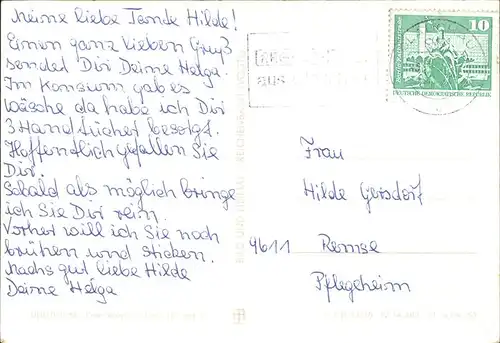 Meine liebe Tande Hilde!
Einen ganz lieben Gruß
sendet Dir Deine Helga.
Im Konsum gab es
Wäsche da habe ich Dir
3 Handtücher besorgt.
Hoffendlich gefallen Sie
Dir.
Sobald als möglich bringe
ich Sie Dir rein.
Vorher will ich Sie noch
brühen und sticken.
Machs gut liebe Hilde
Deine Helga
10
DEUTSCHE DEMOKRATISCHE REPUBLIK
Frau
Hilde Gersdorf
9611 Remse
Pflegeheim